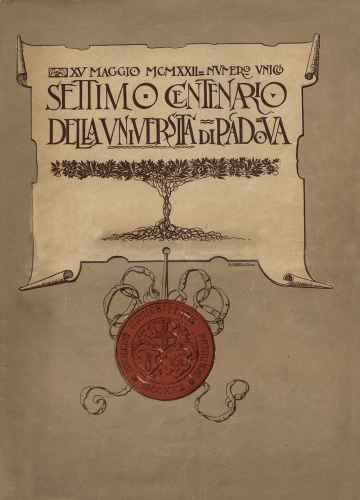 XV MAGGIO MCMXXII = NVMERO VNICO
SETTIMO CENTENARIO
DELLA VNIVERSITÀ DI PADOVA